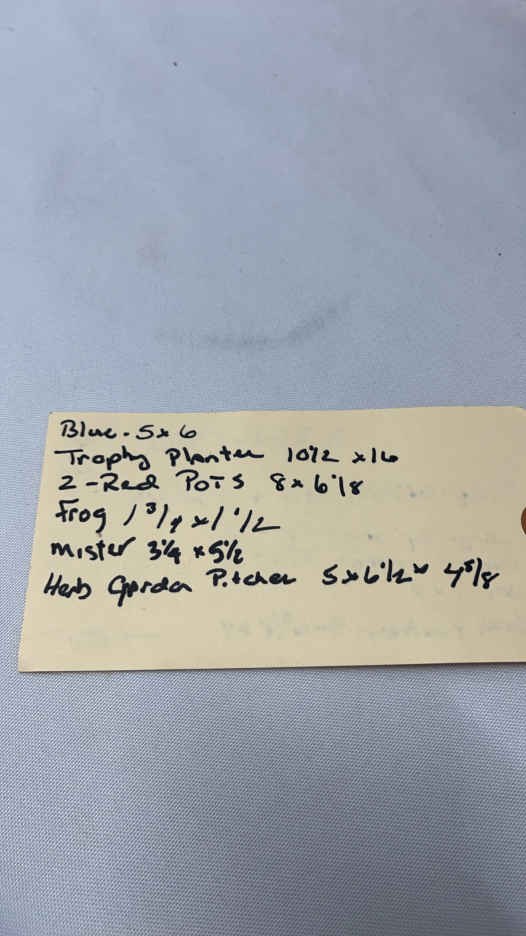 Blue - 5x6
Trophy Planter 10 1/2 x 16
2 - Red Pots 8 x 6 1/8
Frog 1 3/4 x 1 1/2
Mister 3 1/4 x 5 1/2
Herb Garden Pitcher 5 x 6 1/2 x 4 5/8